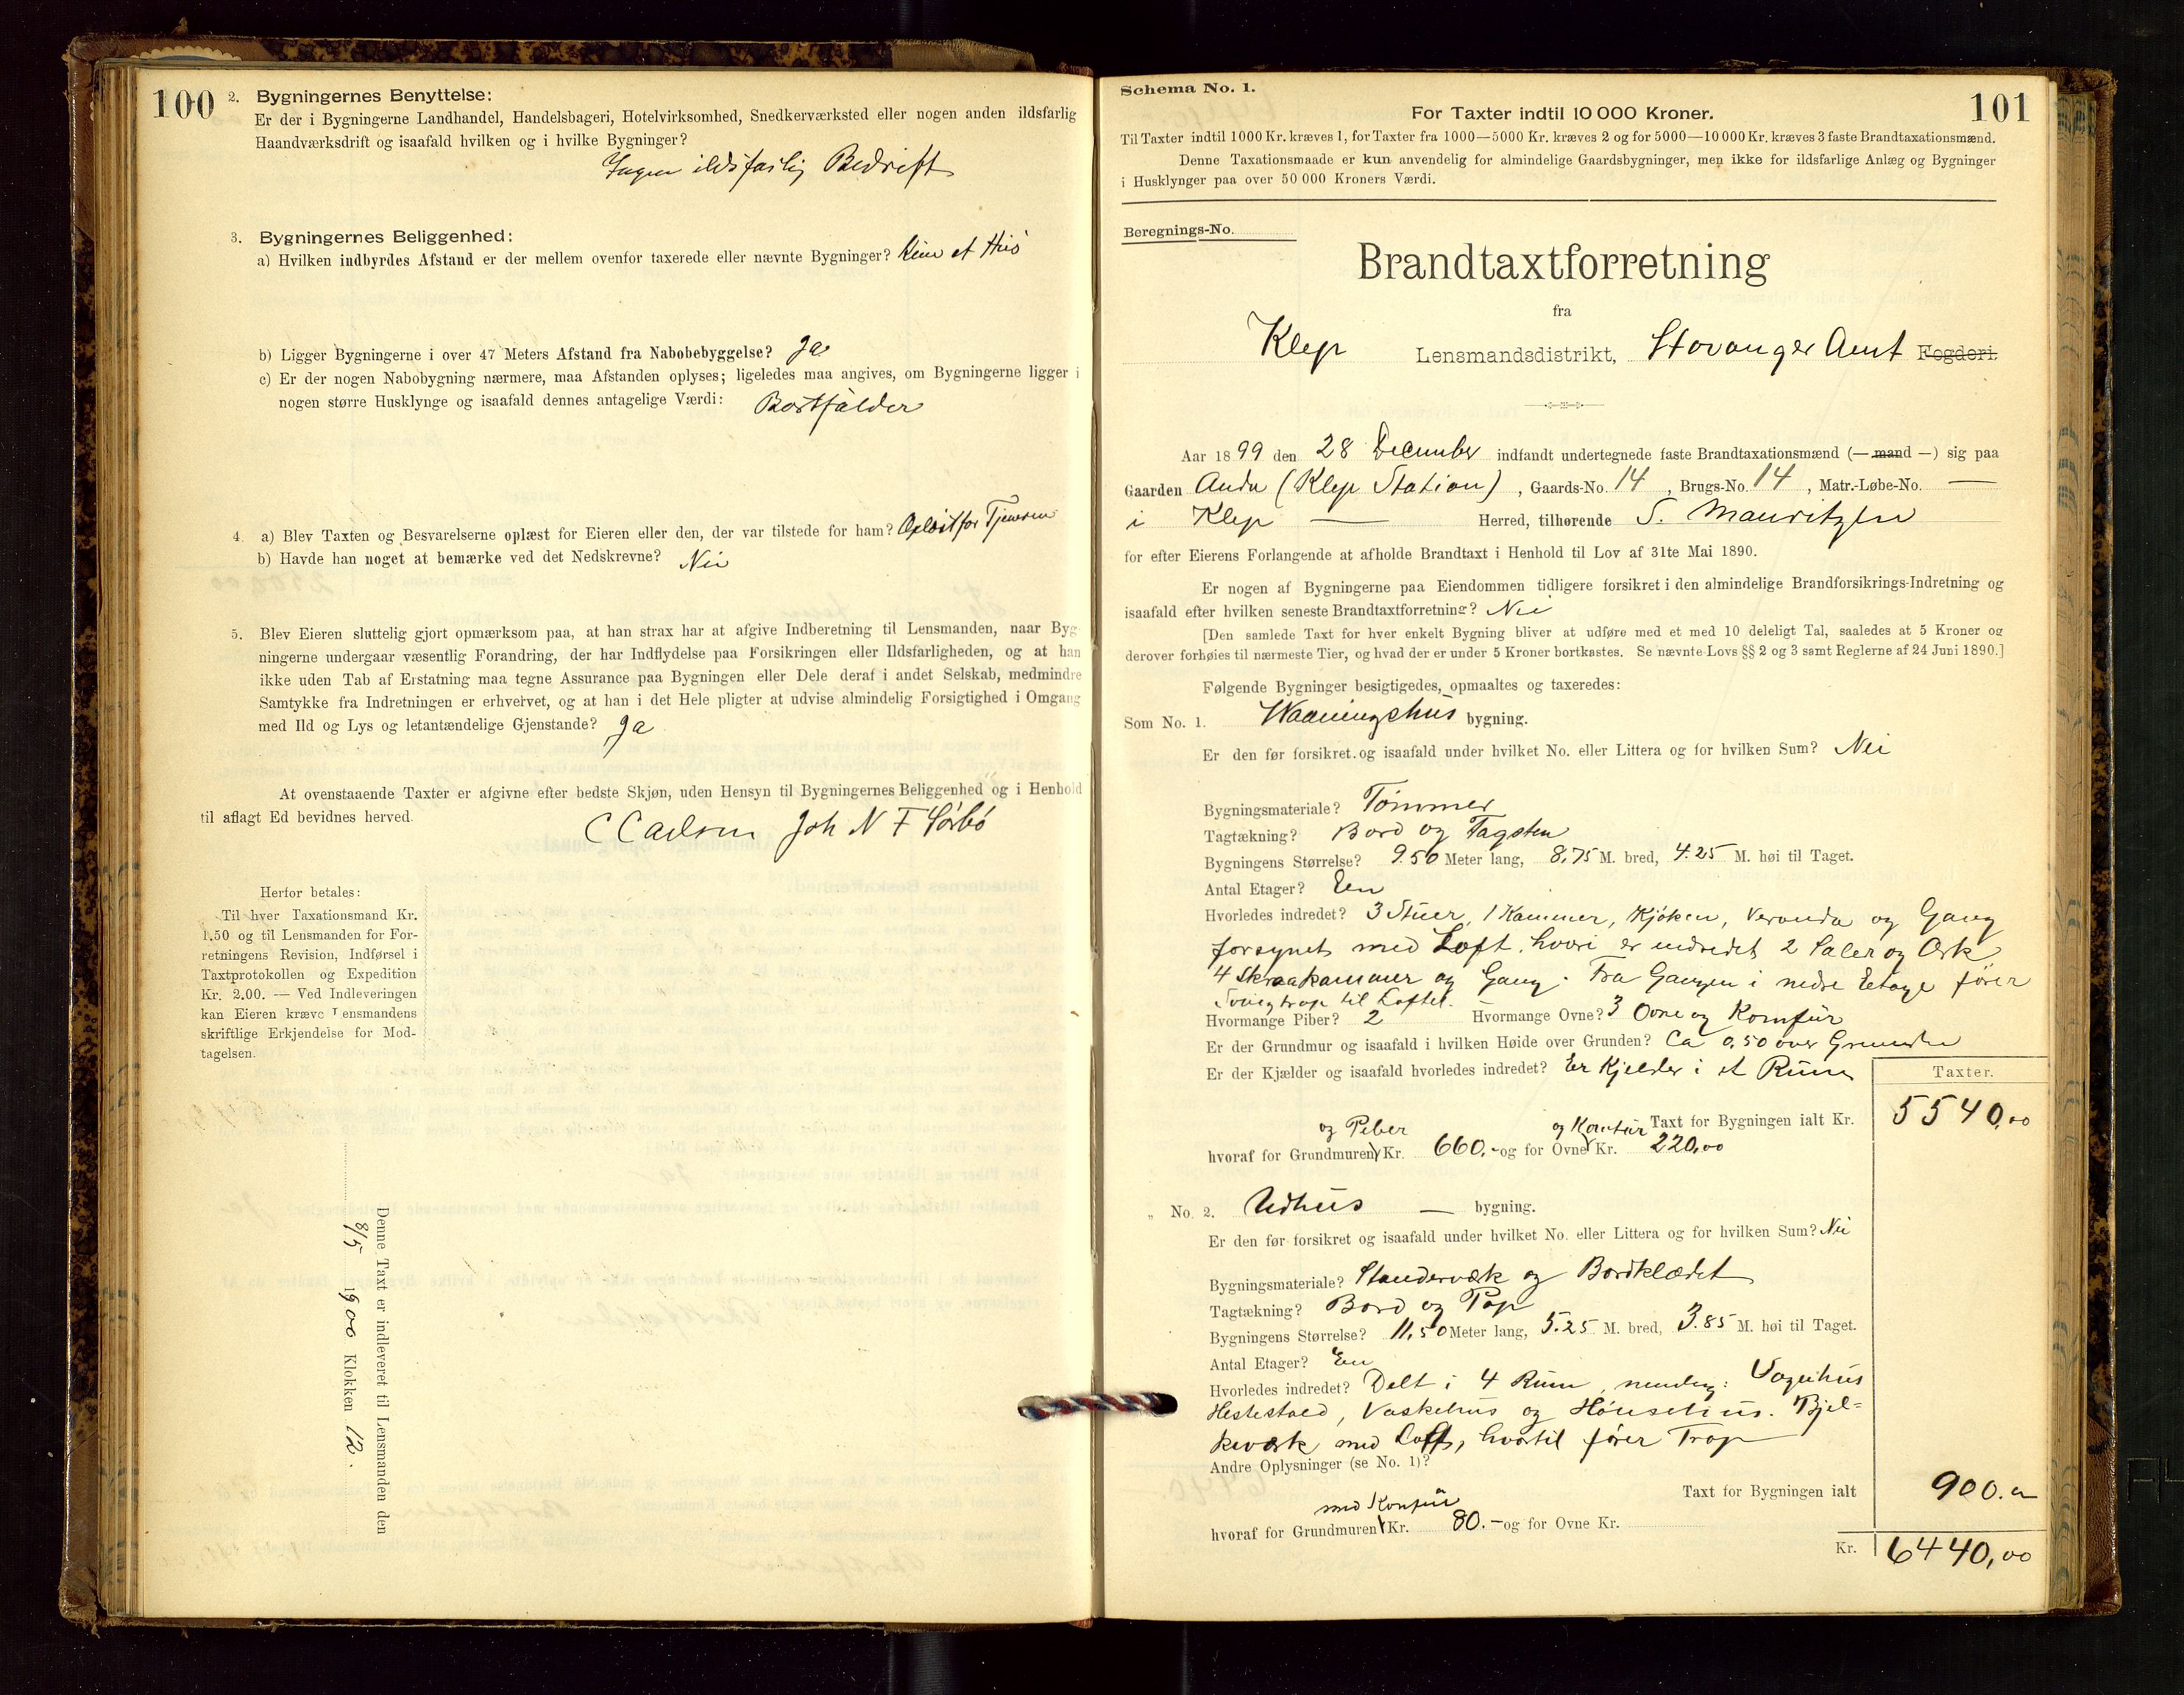 100
2. Bygningernes Benyttelse:
Er der i Bygningerne Landhandel, Handelsbageri, Hotelvirksomhed, Snedkerværksted eller nogen anden ildsfarlig
Haandværksdrift og isaafald hvilken og i hvilke Bygninger?
Ingen ildsfarlig Bedrift
3. Bygningernes Beliggenhed:
a) Hvilken indbyrdes Afstand er der mellem ovenfor taxerede eller nævnte Bygninger? Kun et Hus
b) Ligger Bygningerne i over 47 Meters Afstand fra Nabobebyggelse? Ja
c) Er der nogen Nabobygning nærmere, maa Afstanden oplyses; ligeledes maa angives, om Bygningerne ligger i
nogen større Husklynge og isaafald dennes antagelige Værdi: Bortfalder
4. a) Blev Taxten og Besvarelserne oplæst for Eieren eller den, der var tilstede for ham? Oplæst for Tjeneren
b) Havde han noget at bemærke ved det Nedskrevne? Nei
5. Blev Eieren sluttelig gjort opmærksom paa, at han strax har at afgive Indberetning til Lensmanden, naar Byg-
ningerne undergaar væsentlig Forandring, der har Indflydelse paa Forsikringen eller Ildsfarligheden, og at han
ikke uden Tab af Erstatning maa tegne Assurance paa Bygningen eller Dele deraf i andet Selskab, medmindre
Samtykke fra Indretningen er erhvervet, og at han i det Hele pligter at udvise almindelig Forsigtighed i Omgang
med Ild og Lys og letantændelige Gjenstande? Ja
At ovenstaaende Taxter er afgivne efter bedste Skjøn, uden Hensyn til Bygningernes Beliggenhed og i Henhold
til aflagt Ed bevidnes herved.
C Carlsen Joh N F Sørbø
Herfor betales:
Til hver Taxationsmand Kr.
1.50 og til Lensmanden for For-
retningens Revision, Indførsel i
Taxtprotokollen og Expedition
Kr. 2.00. — Ved Indleveringen
kan Eieren kræve Lensmandens
skriftlige Erkjendelse for Mod-
tagelsen.
Denne Taxt er indleveret til Lensmanden den
8/5 1900 Klokken 12.
Schema No. 1.
101
For Taxter indtil 10 000 Kroner.
Til Taxter indtil 1000 Kr. kræves 1, for Taxter fra 1000—5000 Kr. kræves 2 og for 5000—10 000 Kr. kræves 3 faste Brandtaxationsmænd.
Denne Taxationsmaade er kun anvendelig for almindelige Gaardsbygninger, men ikke for ildsfarlige Anlæg og Bygninger
i Husklynger paa over 50 000 Kroners Værdi.
Beregnings-No.
Brandtaxtforretning
fra
Klep Lensmandsdistrikt, Stavanger Amt Fogderi.
Aar 1899 den 28 December indfandt undertegnede faste Brandtaxationsmænd (— mand —) sig paa
Gaarden Anda (Klep Station), Gaards-No. 14, Brugs-No. 14, Matr.-Løbe-No. —
i Klep — Herred, tilhørende S. Mauritzen
for efter Eierens Forlangende at afholde Brandtaxt i Henhold til Lov af 31te Mai 1890.
Er nogen af Bygningerne paa Eiendommen tidligere forsikret i den almindelige Brandforsikrings-Indretning og
isaafald efter hvilken seneste Brandtaxtforretning? Nei
[Den samlede Taxt for hver enkelt Bygning bliver at udføre med et med 10 deleligt Tal, saaledes at 5 Kroner og
derover forhøies til nærmeste Tier, og hvad der er under 5 Kroner bortkastes. Se nævnte Lovs §§ 2 og 3 samt Reglerne af 24 Juni 1890.]
Følgende Bygninger besigtigedes, opmaaltes og taxeredes:
Som No. 1. Waaningshus bygning.
Er den før forsikret og isaafald under hvilket No. eller Littera og for hvilken Sum? Nei
Bygningsmateriale? Tømmer
Tagtækning? Bord og Tagsten
Bygningens Størrelse? 9.50 Meter lang, 8,75 M. bred, 4.25 M. høi til Taget.
Antal Etager? Een
Hvorledes indredet? 3 Stuer, 1 Kammer, Kjøken, Veranda og Gang
forsynet med Loft, hvori er indredet 2 Saler og Ark
4 Skraakammer og Gang. Fra Gangen i nedre Etage fører
Svingtrap til Loftet.
Hvormange Piber? 2 Hvormange Ovne? 3 Ovne og Komfur
Er der Grundmur og isaafald i hvilken Høide over Grunden? Ca 0,50 over Grunden
Er der Kjælder og isaafald hvorledes indredet? Er Kjelder i et Rum
Taxter.
Taxt for Bygningen ialt Kr. 5540,00
hvoraf for Grundmuren og Piber Kr. 660.- og for Ovne og Komfur Kr. 220,00
„ No. 2. Udhus — bygning.
Er den før forsikret og isaafald under hvilket No. eller Littera og for hvilken Sum? Nei
Bygningsmateriale? Standerværk og Bordklædet
Tagtækning? Bord og Pap
Bygningens Størrelse? 11,50 Meter lang, 5.25 M. bred, 3.85 M. høi til Taget.
Antal Etager? En
Hvorledes indredet? Delt i 4 Rum, nemlig: Vognhus
Hestestald, Vaskehus og Hønsehus. Bjel=
keværk med Loft, hvortil fører Trap
Andre Oplysninger (se No. 1)?
Taxt for Bygningen ialt 900.
hvoraf for Grundmuren med Komfur Kr. 80.- og for Ovne Kr.
Kr. 6440,00